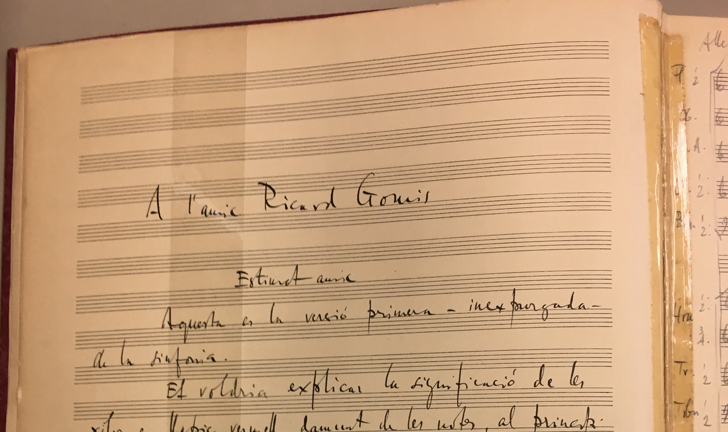 A l'amic Ricard Gomis
Estimat amic
Aquesta es la versió primera - inexpurgada -
de la sinfonia.
Et voldria explicar la significació de les
xifres e lletres vermell damunt de les notes, al principi
Alle
Fl. 2
2
A.
2
2
2
Tr. 2
Tbn 2